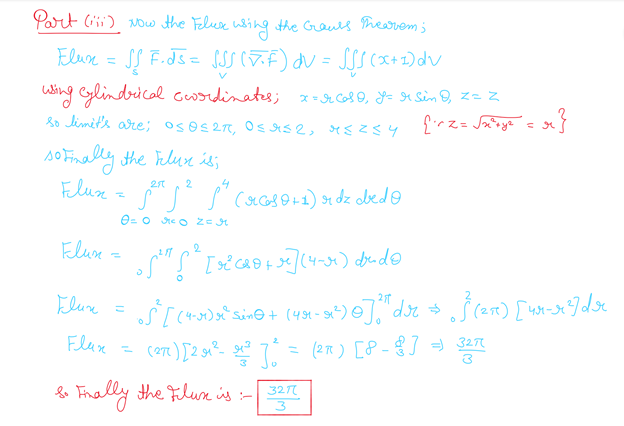 Part (iii) Now the Flux using the Gauss Theorem;
Flux = ∬_S F̄.d̄s = ∭_V (∇̄.F̄) dV = ∭_V (x+1) dV
using cylindrical coordinates; x = r cos θ, y = r sin θ, z = z
so limit's are; 0 ≤ θ ≤ 2π, 0 ≤ r ≤ 2, r ≤ z ≤ 4 {∵ z = √(x²+y²) = r}
so Finally the Flux is;
Flux = ∫_{θ=0}^{2π} ∫_{r=0}^{2} ∫_{z=r}^{4} (r cos θ + 1) r dz dr dθ
Flux = ∫_0^{2π} ∫_0^2 [r² cos θ + r] (4-r) dr dθ
Flux = ∫_0^2 [(4-r) r² sin θ + (4r - r²) θ]_0^{2π} dr ⇒ ∫_0^2 (2π) [4r - r²] dr
Flux = (2π) [2r² - r³/3]_0^2 = (2π) [8 - 8/3] ⇒ 32π/3
so Finally the Flux is :- 32π/3